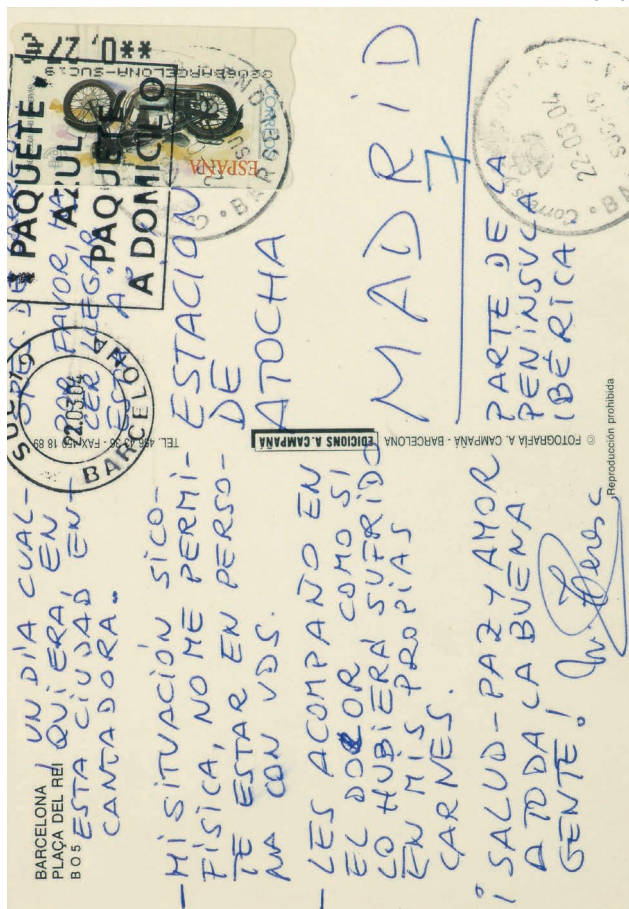 BARCELONA
PLAÇA DEL REI
B 05
UN DÍA CUAL-
QUIERA, EN
ESTA CIUDAD EN-
CANTADORA.
-MI SITUACIÓN SICO-
FÍSICA, NO ME PERMI-
TE ESTAR EN PERSO-
NA CON VDS.
-LES ACOMPAÑO EN
EL DOLOR COMO SI
LO HUBIERA SUFRIDO
EN MIS PROPIAS
CARNES.
¡SALUD-PAZ Y AMOR
A TODA LA BUENA
GENTE!
TEL. 456 43 36 - FAX 450 18 89
EDICIONS A. CAMPAÑÁ
FOTOGRAFÍA A. CAMPAÑÁ - BARCELONA
©
Reproducción prohibida
**0,27€
BARCELONA-SUC19
CORREOS
ESPAÑA
PAQUETE
AZUL
PAQUETE
A DOMICILIO
POR FAVOR, HA-
CER LLEGAR
ESTA A:
ESTACIÓN
DE
ATOCHA
MADRID
7
PARTE DE LA
PENÍNSULA
IBÉRICA
22.03.04
BARCELONA
Correos
22-03 04
SUC-19